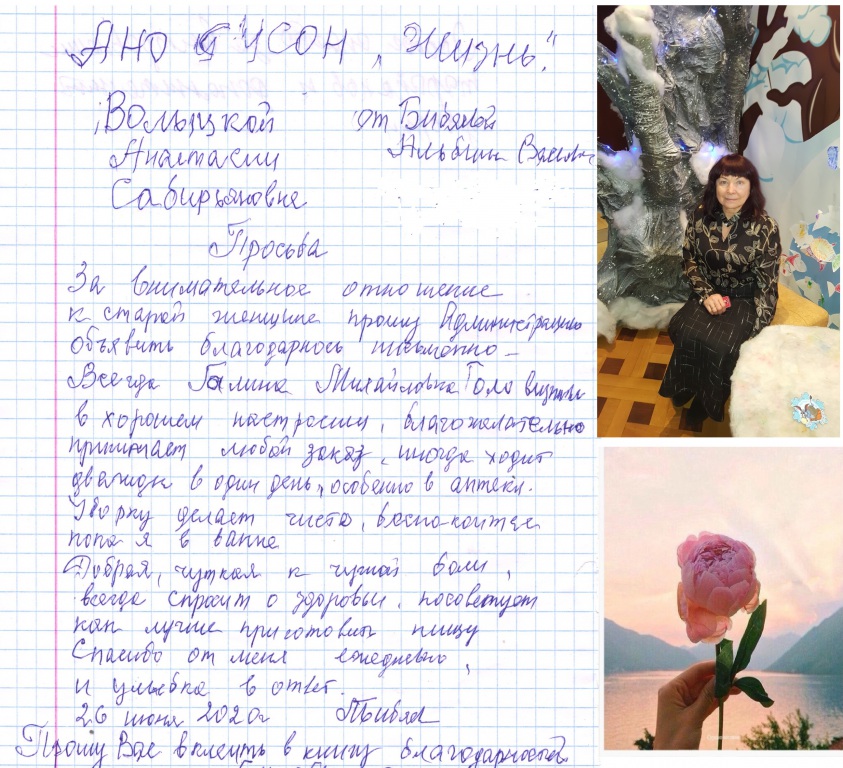 АНО СУСОН „Жизнь".
Волыцкой от Бибяевой
Анастасии Альбины
Сабирьяновне
Просьба
За внимательное отношение
к старой женщине прошу Администрацию
объявить благодарнось письменно –
Всегда Галина Михайловна
в хорошем настроении, благожелательно
принимает любой заказ, иногда ходит
дважды в один день, особенно в аптеки.
Уборку делает чисто,
пока я в ванне
Добрая, чуткая к чужой боли,
всегда спросит о здоровьи, посоветует
как лучше приготовить пищу
Спасибо от меня ежедневно,
и улыбка в ответ.
26 июня 2020г
Прошу Вас вклеить в книгу благодарностей